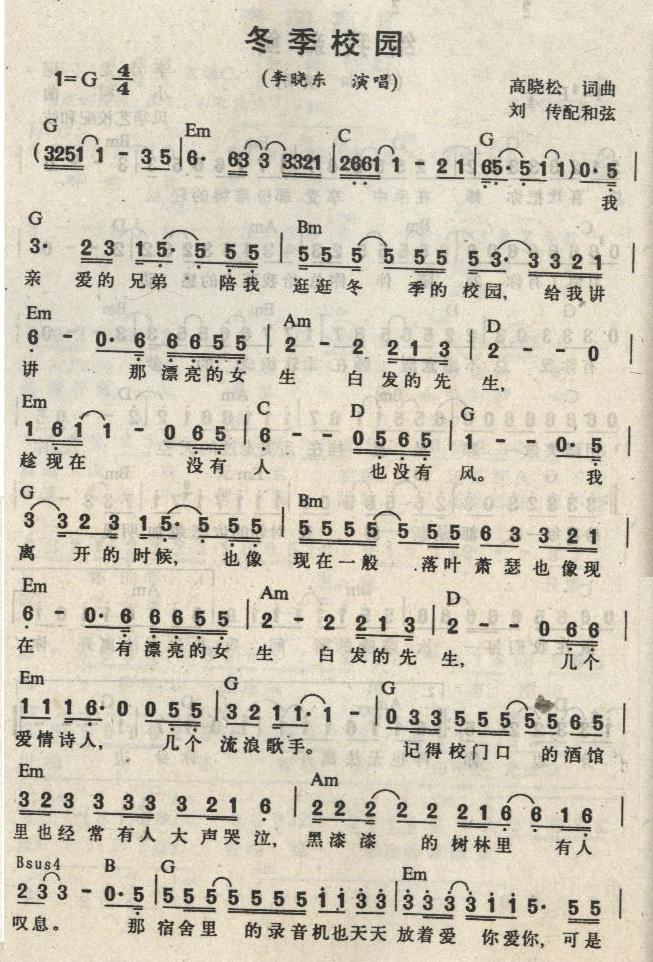 冬季校园
1=G 4/4 (李晓东 演唱) 高晓松 词曲
刘 传配和弦
G Em C G
(3251 1 - 35 | 6· 63 3 3321 | 2661 1 - 21 | 65·51 1) 0·5 |
我
G Bm
3· 23 15· 5· 55 | 55 5 555 53· 3321 |
亲 爱的 兄弟 陪我 逛逛 冬 季的 校园, 给我讲
Em Am D
6 - 0·6 6655 | 2 - 2 213 | 2 - - 0 |
讲 那 漂亮的女 生 白 发的先 生,
Em C D G
1 61 1 - 065 | 6 - - 0565 | 1 - - 0·5 |
趁现在 没有 人 也没有 风。 我
G Bm
3 323 15· 555 | 5555 5 55 63 321 |
离 开的时候, 也像 现在一般 落叶 萧瑟也像现
Em Am D
6 - 0·6 6655 | 2 - 2 213 | 2 - - 066 |
在 有漂亮的女 生 白 发的先 生, 几个
Em G G
1 11 6· 0 055 | 32 11· 1 - | 033 555 5565 |
爱情诗人, 几个 流浪歌手。 记得校门口 的酒馆
Em Am
323 333 321 6 | 222 22 216 616 |
里也经 常有人 大声哭泣, 黑漆漆 的树林里 有人
Bsus4 B G Em
233 - 0·5 | 555 5555 1133 | 333 311 5· 55 |
叹息。 那 宿舍里 的录音机也天天 放着爱 你爱你, 可是